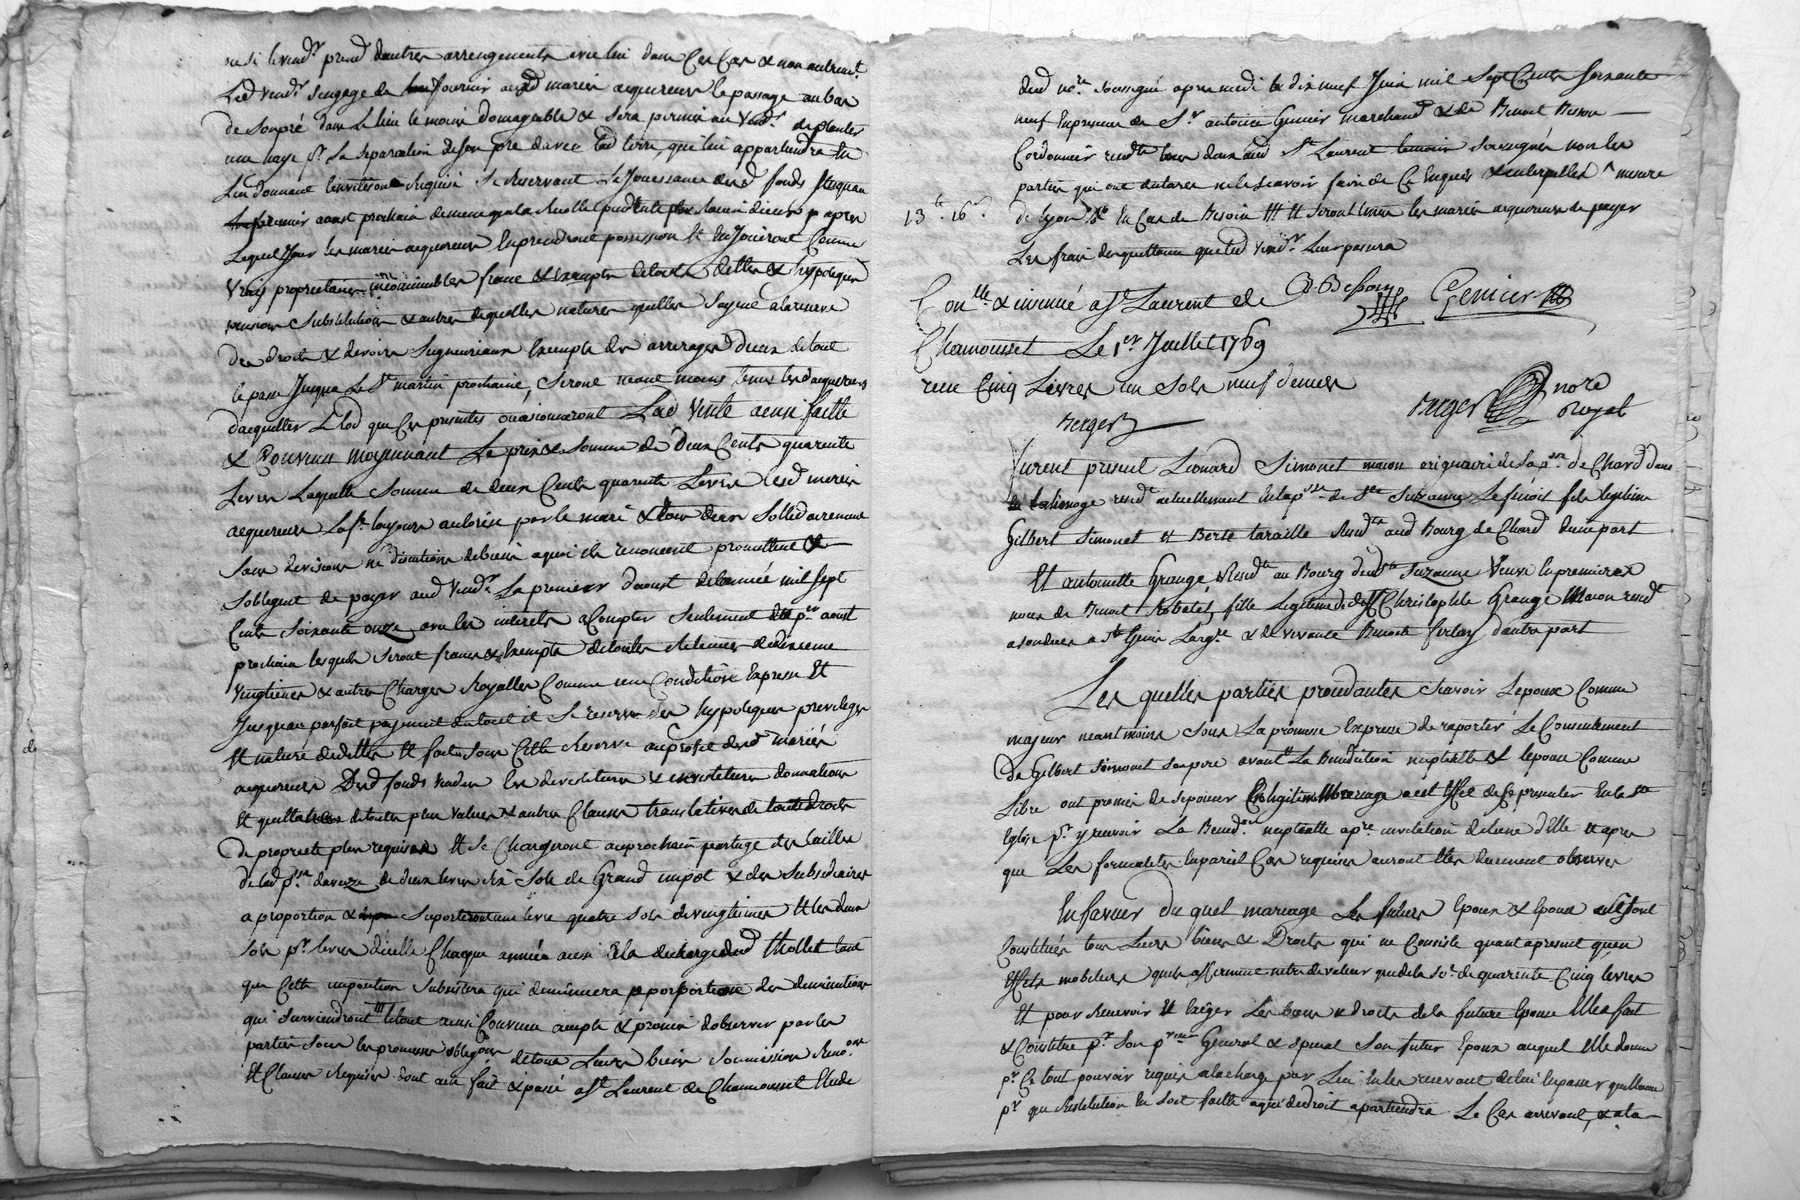 ou si le vendr prend dautres arrengements avec lui dans ces cas & non autremt
Led vendr sengage de fournir aud marié acquereurs le passage au bas
de son pré dans le lieu le moins domageable & sera permis au vendr de planter
une haye pr la separation de son pré davec led terre, qui lui appartiendra en
Lui donnant requise se reservant la jouissance dud fonds jusquau
premier aoust prochain de meme que la recolte pendante
lequel jour les mariés acquereurs en prendront possession et en jouiront comme
vrais proprietaires incommutables francs & exempts de toutes dettes & hypoteques
pensions substitutions & autres de quelles natures quelles soyent a la reserve
des droits & devoirs seigneuriaux exempts des arrerages diceux de tout
le passé jusqua la St martin prochaine, seront neant moins tenus les dacquereurs
dacquitter Llod que ces presentes ouasionneront Lad vente ainsi faitte
& Convenu moyennant Le prix & somme de deux Cents quarente
Livres Laquelle somme de deux Cents quarente Livres lesd mariés
acquereurs La fe toujours autorisée par le mari & tous deux sollidairement
sans division ni discution de biens a quoi ils renoncent promettent &
sobligent de payer aud vendr Le premier daoust de lannée mil sept
Cents soixante onze avec les interets a Compter seulement du pr aoust
prochain lesquels seront francs & exempts de toutes retenües de dixieme
vingtieme & autres Charges Royalles Comme une Condition expresse Et
jusquau parfait payement du tout il se reserve les hypoteques privileges
Et nature de dettes Et fait sous Cette reserve au profit desd mariés
acquereurs Dud fonds vendu les devestitures & investitures donnations
Et quittances de toutes plus values & autres Clauses translatives de toute droits
De proprieté plus requises Et se Chargeront au prochain partage des tailles
de lad pse daveize de deux livres dix sols de Grand impot & des subsidiaires
a proportion & suporteront une livre quatre sols de vingtiemes Et les deux
sols pr livres dicelle Chaque année aussi a la decharge dud thollet tant
que Cette imposition subsistera qui diminuera a proportion des diminutions
qui surviendront le tout ainsi Convenu accepté & promis dobserver par les
parties sous les promesses obligons de tous Leurs biens soumission Renons
Et Clauses requises dont acte fait & passé a St Laurent de Chamousset Etude
dud nre soussigné apres midi le dix neuf Juin mil sept Cents soixante
neuf En presence de Sr antoine Genier marchand & de Benoit Besson
Cordonnier residts tous deux aud St Laurent temoins soussignés non les
parties qui ont declarés ne le scavoir faire de Ce Enquis & interpellés ^ mesure
13le 16s
de Lyon En Cas de Besoin Et seront tenus les mariés acquereurs de payer
Les frais des quittances que led vendr Leur passera
B. Besson
Genier
Conllé & insinué a St Laurent de
Chamousset Le 1er Juillet 1769
recu Cinq Livres un Sols neuf deniers
Berger
Berger nore Royal
Furent present Leonard Simonet macon originaire de la pse de Chard dans
Lalimoge residt actuellement en la pse de Ste Suzanne Le fils legitime
Gilbert Simonet et Berte taraille Residts aud Bourg de Chard dune part
Et antoinette Grange Residte au Bourg dud Ste Suzanne Veuve en premieres
noces de Benoit fille legitime de deffunt Christophle Grange macon residt
a son deces a St Genis Largre & de vivante Benoite ferlay dautre part
Les quelles parties procedantes Scavoir Lepoux Comme
majeur neantmoins sous La promesse expresse de raporter Le Consentement
de Gilbert Simonet son pere avant La Benediction nuptialle & lepouse Comme
Libre ont promis de sepouser En legitime Mariage a cet effet de se presenter En la ste
Eglise pr y recevoir La Benedon nuptialle apre invitation de lune delle et apres
que Les formalités En pareil Cas requises auront Etés duement observées
En faveur du quel mariage Les futurs Epoux & Epouse se sont
Constitués tous Leurs biens & Droits qui ne Consiste quant apresent quen
Effets mobiliers quils afferment netre de valeur que de la se de quarente Cinq livres
Et pour recevoir Et Exiger Les biens & droits de la future Epouse Elle fait
& Constitue pr son preur General & special son futur Epoux auquel Elle donne
pr Ce tout pouvoir requis a la charge par Lui en les recevant de lui en passer quittance
pr que restitution En soit faitte a qui de droit apartiendra Le Cas arrivant, & a la